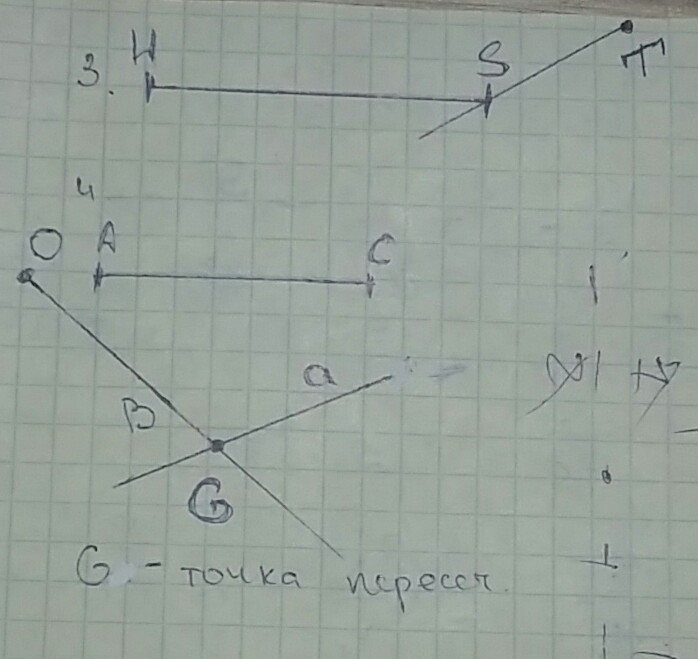 3. H S T
4
O A C
a
B
G
G - точка пересеч.